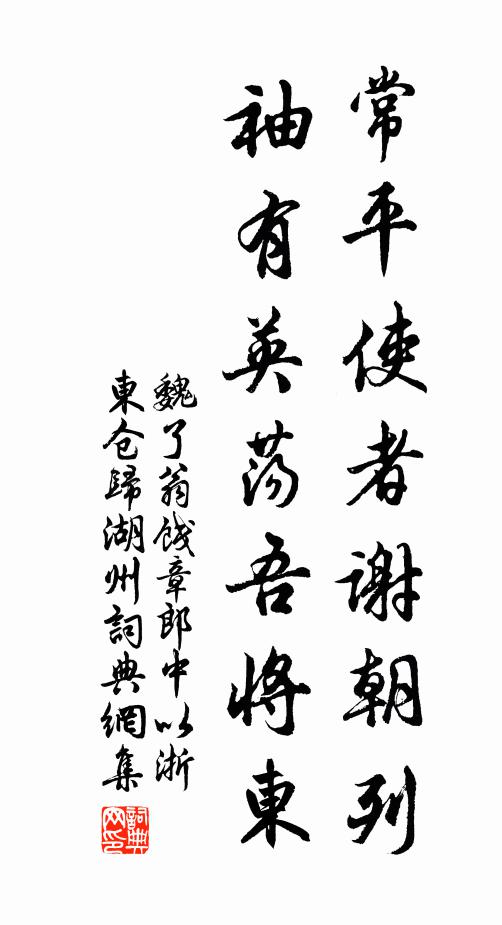 常平使者謝朝列
袖有英荡吾將東
魏了翁餞章郎中以浙
東仓歸湖州詞典網集
詞典网印